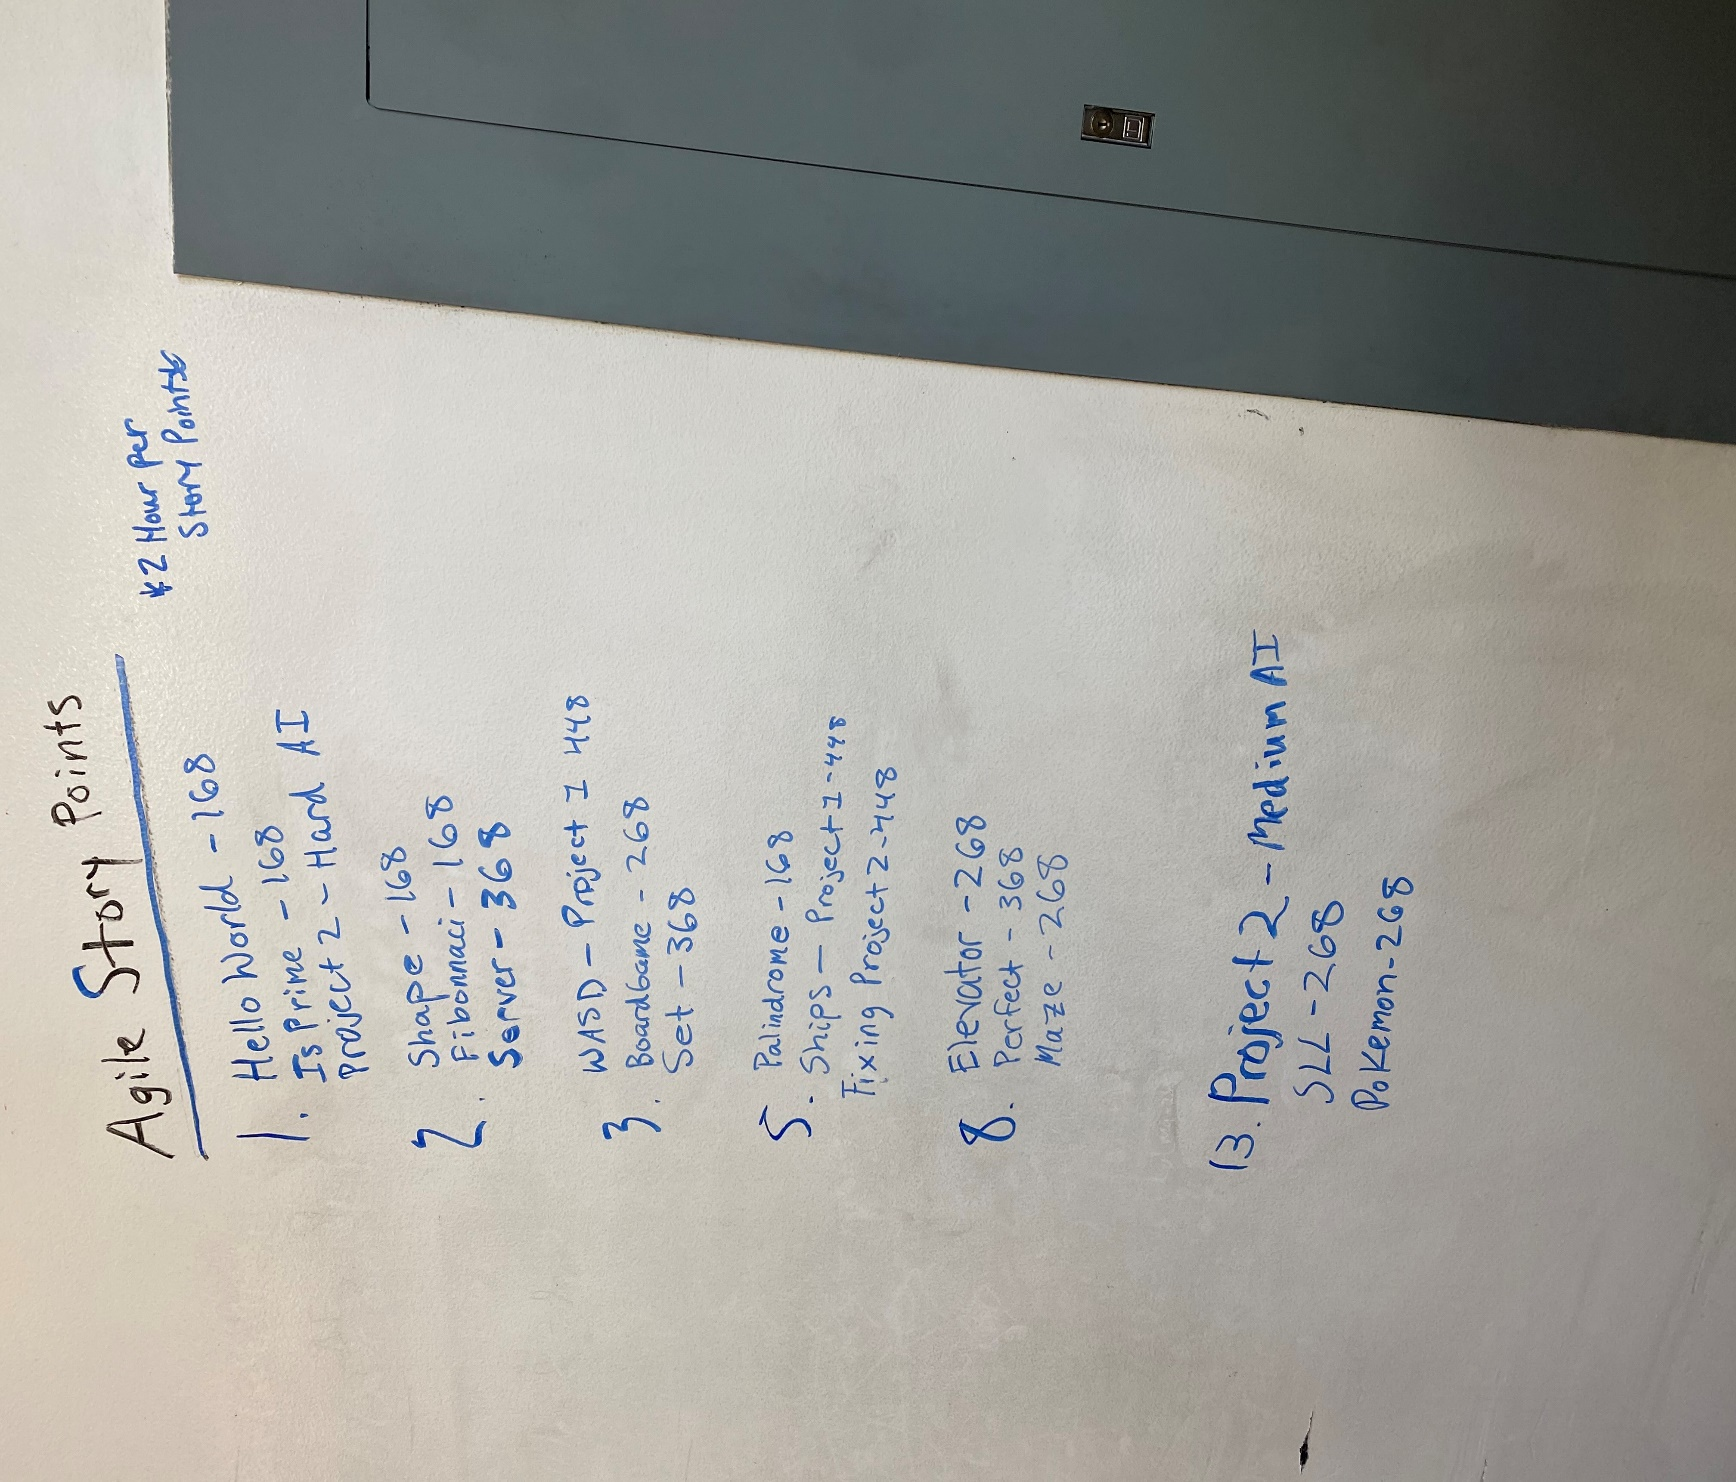 Agile Story Points
*2 Hour per
Story Points
1. Hello World - 168
Is Prime - 168
Project 2 - Hard AI
2. Shape - 168
Fibonnaci - 168
Server - 368
3. WASD - Project 1 448
BoardGame - 268
Set - 368
5. Palindrome - 168
Ships - Project 1 - 448
Fixing Project 2 - 448
8. Elevator - 268
Perfect - 368
Maze - 268
13. Project 2 - Medium AI
SLL - 268
Pokemon - 268